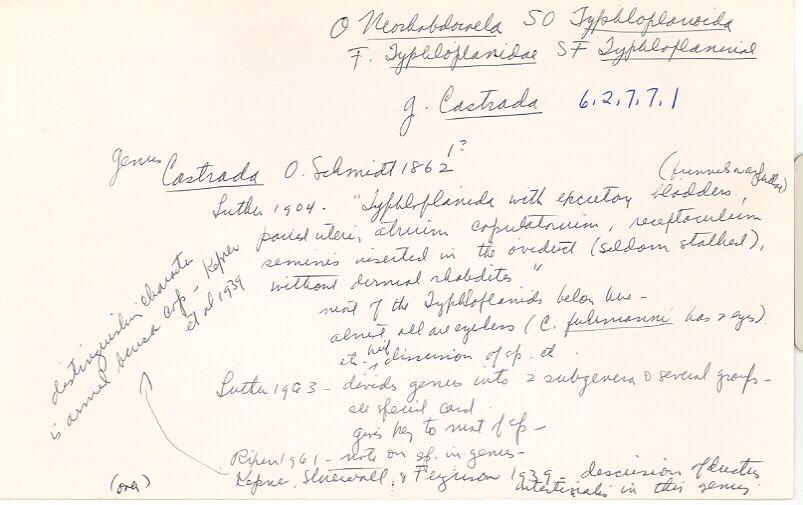 O Neorhabdocoela SO Typhloplanoida
F. Typhloplanidae SF Typhloplaninae
g. Castrada 6.2.7.7.1
genus Castrada O. Schmidt 1862
1?
Luther 1904 - "Typhloplanida with excretory bladders,
paired uteri, atrium copulatorium, receptaculum
seminis inserted in the oviduct (seldom stalked),
without dermal rhabdites"
most of the Typhloplanids belong here -
almost all are eyeless (C. fuhrmanni has 2 eyes).
etc. brief discussion of sp. etc.
Luther 1963 - divides genus into 2 subgenera & several groups -
see special card
gives key to most of sp -
Riper 1961 - note on sp. in genus -
Kepner, Stirewalt, & Ferguson 1939 - discussion of ductus
intestinalis in this genus
distinguishing character
is armed bursa cop - Kepner
et al 1939
(over)